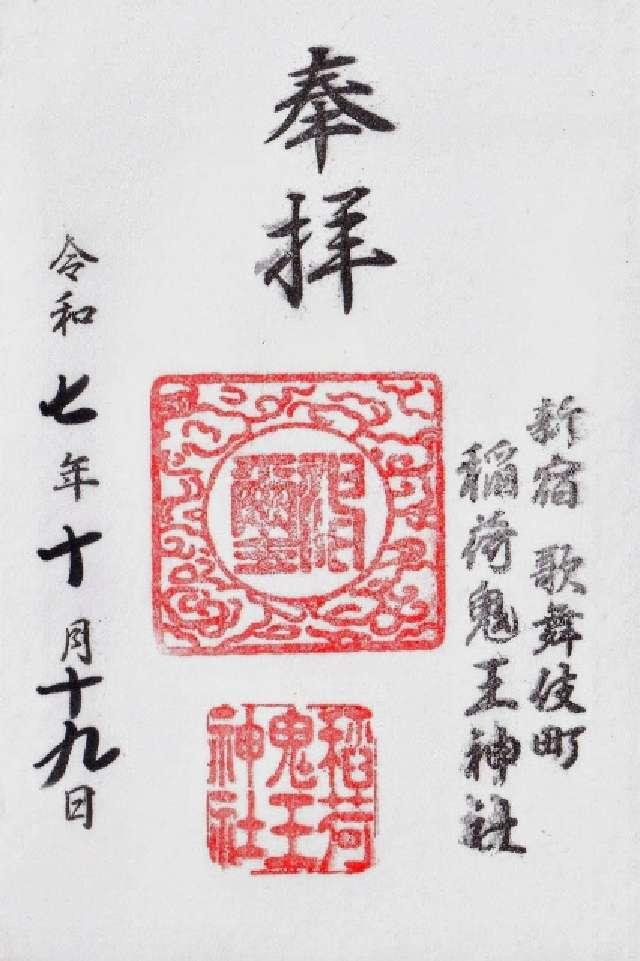 奉拝
新宿 歌舞伎町
稲荷鬼王神社
稲荷
鬼王
神社
令和七年十月十九日